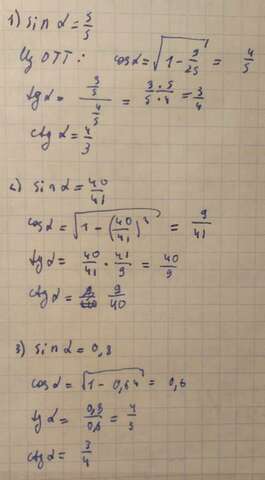 1) sin α = 5/5
Из ОТТ: cos α = √(1 - 9/25) = 4/5
tg α = (3/5)/(4/5) = (3·5)/(5·4) = 3/4
ctg α = 4/3
2) sin α = 40/41
cos α = √(1 - (40/41)²) = 9/41
tg α = 40/41 · 41/9 = 40/9
ctg α = 9/40
3) sin α = 0,8
cos α = √(1 - 0,64) = 0,6
tg α = 0,8/0,6 = 4/3
ctg α = 3/4